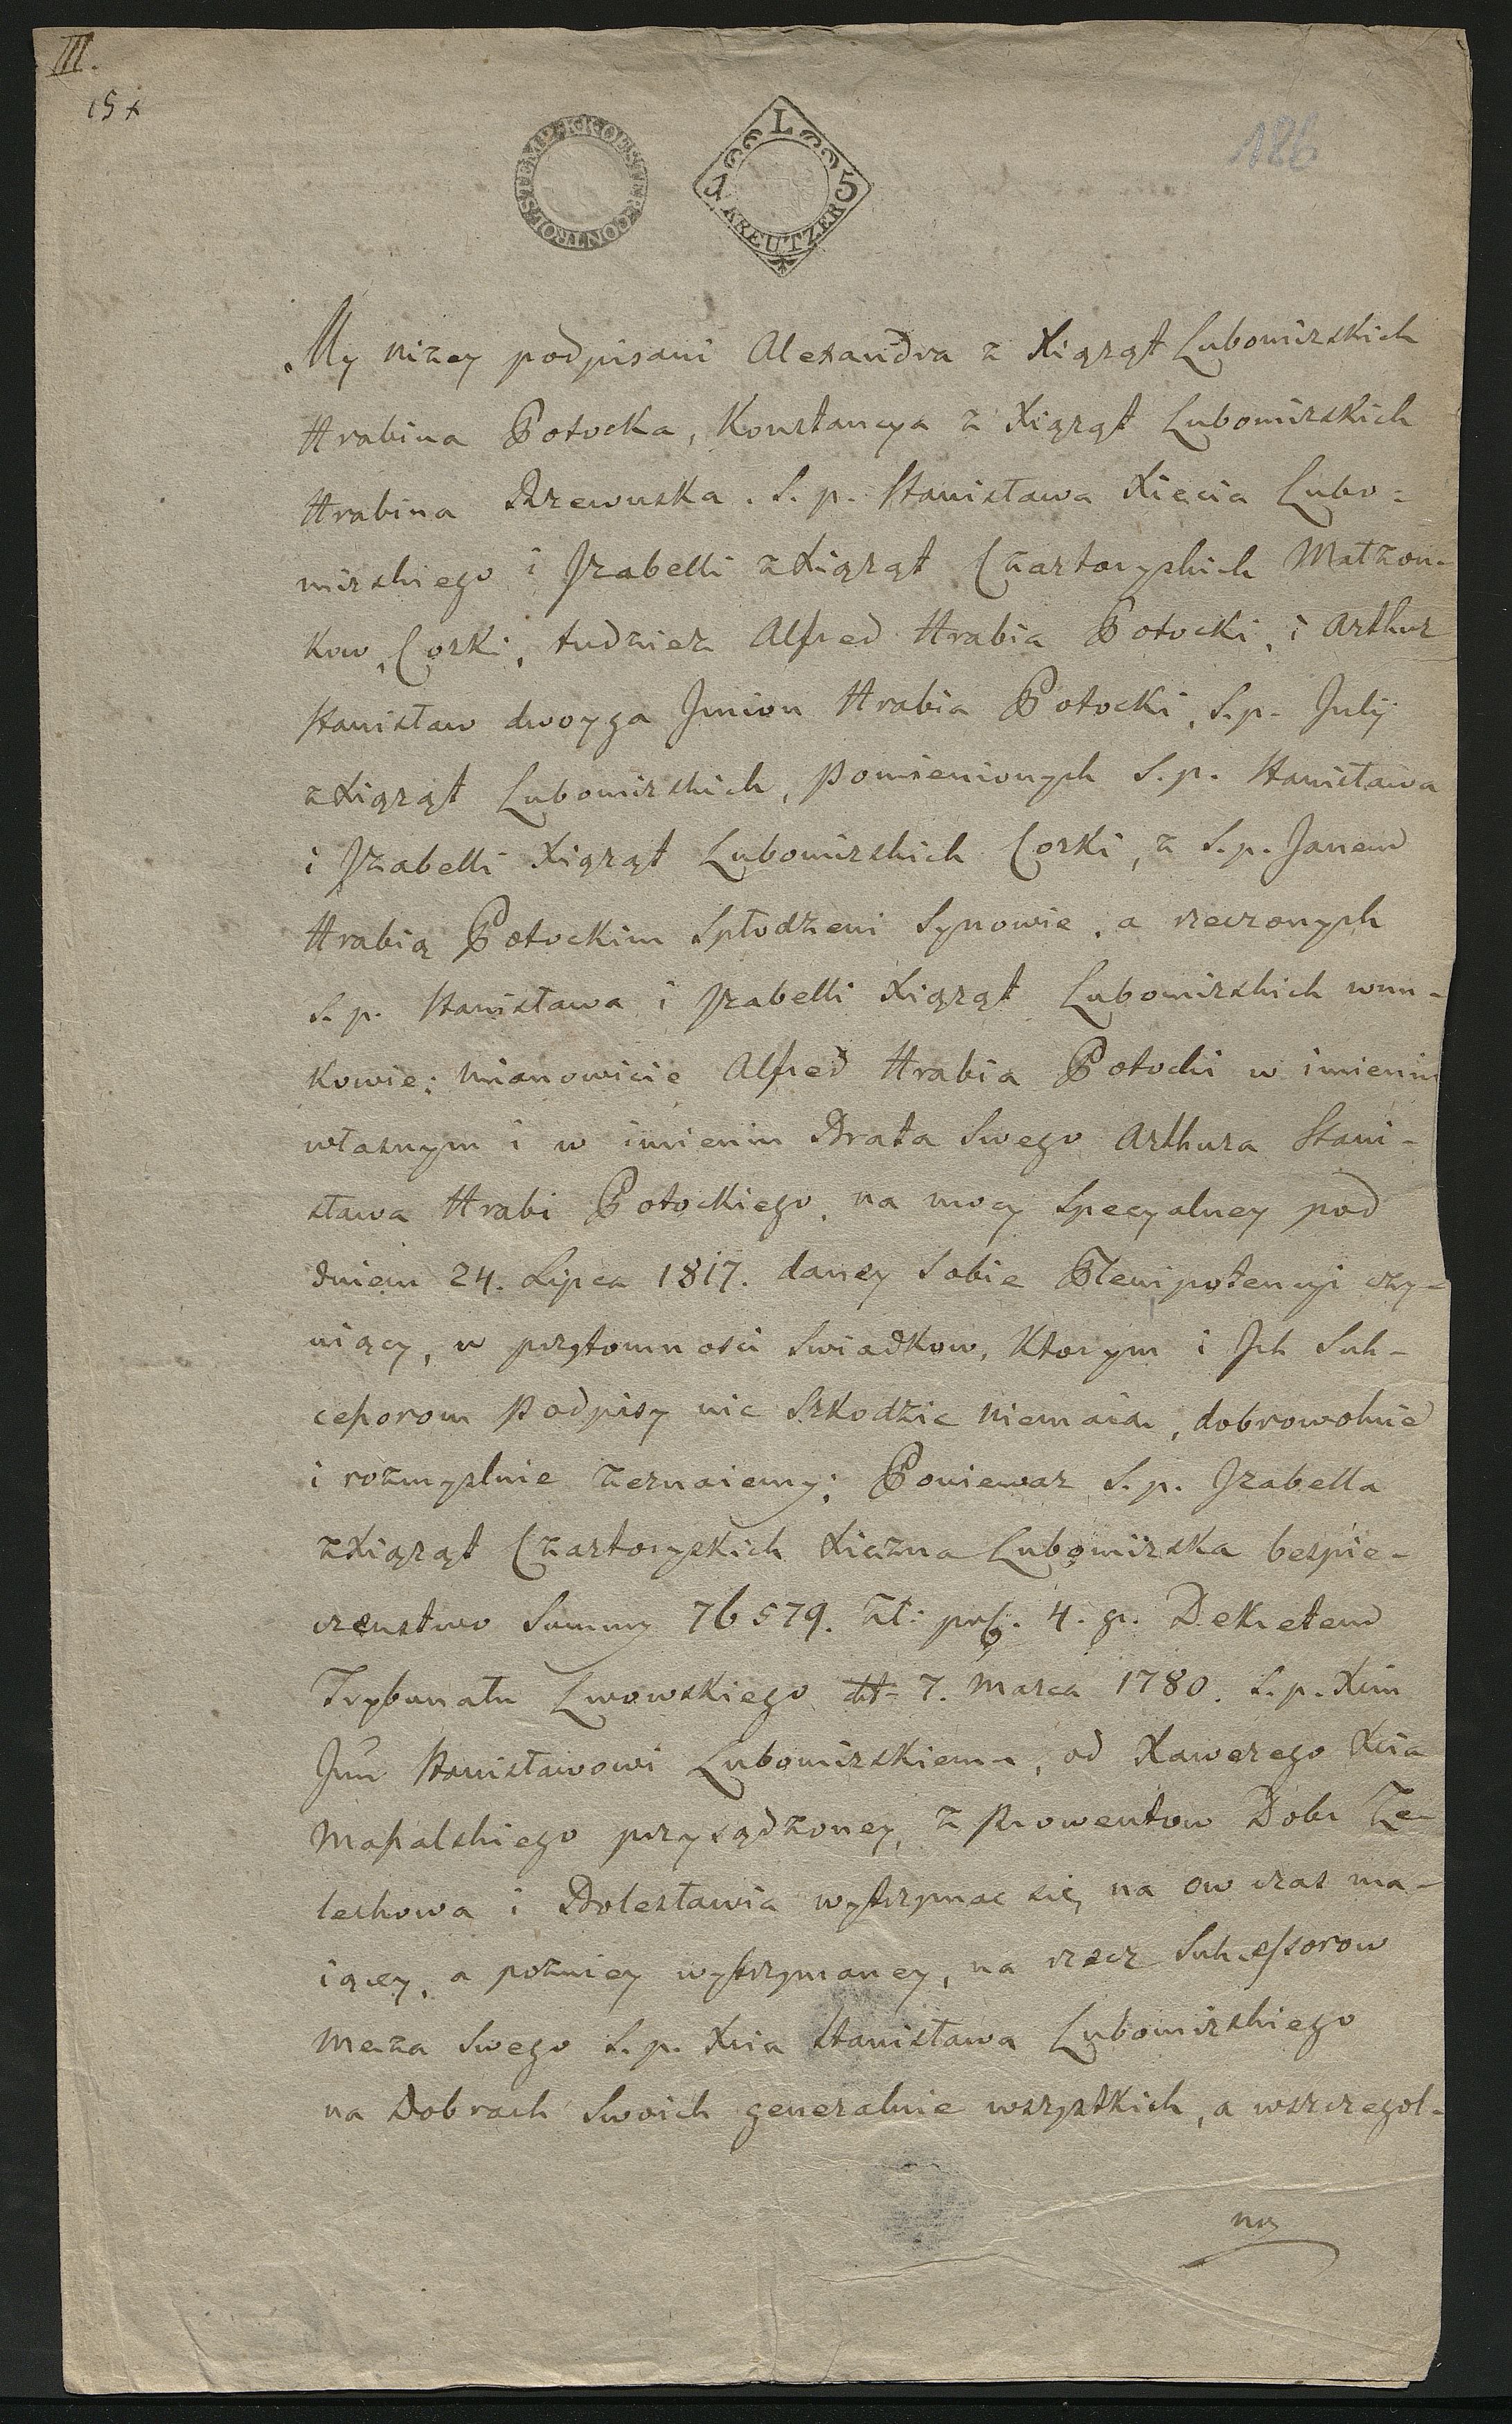 III.
15 x
186
STEMP. K.K. OESTER. CONTROLS
L
15
KREUTZER
My nizey podpisani Alexandra z Xiąząt Lubomirskich
Hrabina Potocka, Konstancya z Xiąząt Lubomirskich
Hrabina Rzewuska. S. p. Stanisława Xięcia Lubo=
mirskiego i Jzabelli z Xiąząt Czartoryskich Małzon-
kow, Corki, tudziez Alfred Hrabia Potocki, i Arthur
Stanisław dwoyga Jmion Hrabia Potocki, S. p. Julij
z Xiąząt Lubomirskich, pomienionych S. p. Stanisława
i Jzabelli Xiąząt Lubomirskich Corki, z S. p. Janem
Hrabią Potockim Spłodzeni Synowie, a rzeczonych
S. p. Stanisława i Jzabelli Xiąząt Lubomirskich wnu-
kowie; mianowicie Alfred Hrabia Potocki w imieniu
własnym i w imieniu Brata Swego Arthura Stani-
sława Hrabi Potockiego, na mocy Specyalney pod
dniem 24. Lipca 1817. daney Sobie Plenipotencyi czy-
niący, w przytomności Swiadkow, Ktorym i Jch Suk-
cessorom podpisy nic Szkodzic niemaią, dobrowolnie
i rozmyslnie zeznaiemy; Poniewaz S. p. Jzabella
z Xiąząt Czartoryskich Xiężna Lubomirska bespie-
czenstwo Summy 76579. Zł: pols. 4. gr. Dekretem
Trybunału Lwowskiego dtt= 7. Marca 1780. S. p. Xciu
Jmci Stanisławowi Lubomirskiemu, od Xawerego Xcia
Massalskiego przysądzoney, z prowentow Dobr Ze-
lechowa i Bolesławia wytrzymac się, na ow czas ma-
iącey, a pozniey wytrzymaney, na rzecz Sukcessorow
Męza Swego S. p. Xcia Stanisława Lubomirskiego
na Dobrach Swoich generalnie wszystkich, a wszczegol-
ny